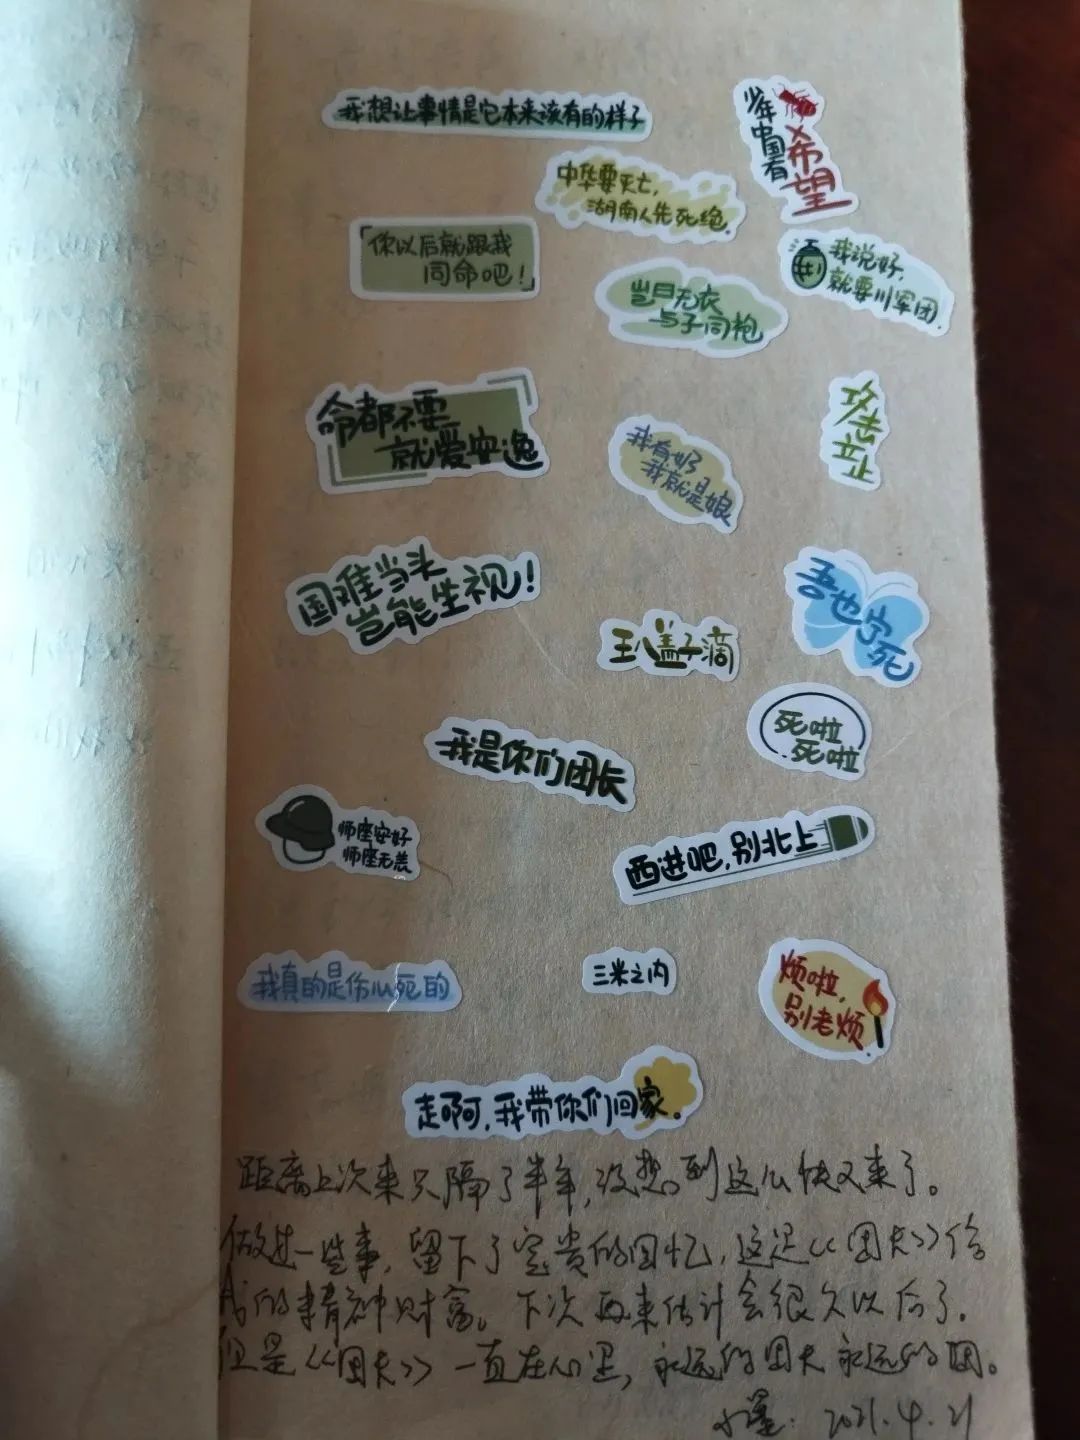 我想让事情是它本来该有的样子
少年中国看
希望
中华要灭亡,
湖南人先死绝.
你以后就跟我
同命吧!
我说好,
就要川军团.
岂曰无衣
与子同袍
命都不要
就爱安逸
我有奶
我就是娘
攻击立止
国难当头
岂能坐视!
王八盖子滴
吾也宁死
死啦
死啦
我是你们团长
师座安好
师座无恙
西进吧,别北上
我真的是伤心死的
三米之内
烦啦,
别老烦.
走啊,我带你们回家.
距离上次来只隔了半年,没想到这么快又来了。
做过一些事,留下了宝贵的回忆,这是《团长》给
我的精神财富。下次再来估计会很久以后了.
但是《团长》一直在心里,永远的团长永远的团。
2021.4.21